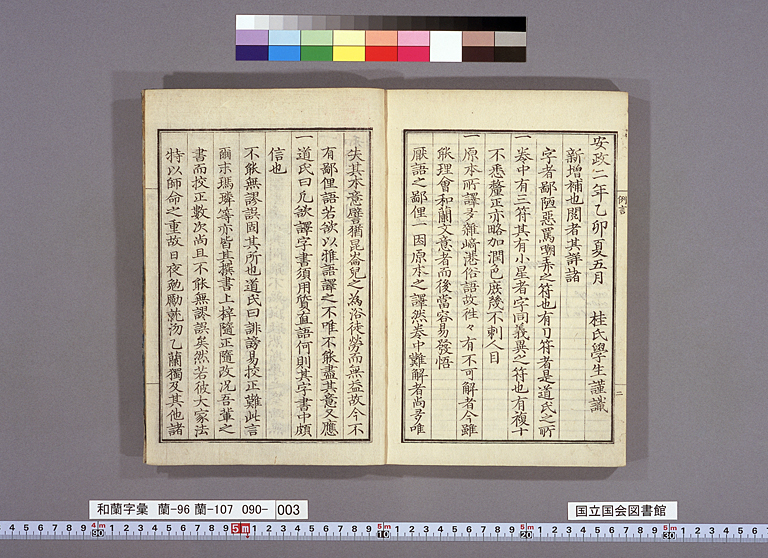 特以師命之重故日夜勉勵兢汲乙蘭獨及其他諸
書而校正數次尚且不能無謬誤矣然若彼大家法
爾末瑪擠等亦皆其撰書上梓隨正隨改况吾輩之
不能無謬誤固其所也道氏曰誹謗易校正難此言
信也
一道氏曰凡欲譯字書須用質直語何則其字書中頗
有鄙俚語若欲以雅語譯之不唯不能盡其意又應
失其本意譬猶昆崙兒之為浴徒勞而無益故今不
厭語之鄙俚一因原本之譯然巻中難解者尚多唯
能理會和蘭文意者而後當容易發悟
一原本所譯多雜﨑港俗語故往々有不可解者今雖
不悉釐正亦略加潤色庶幾不刺人目
一巻中有三符其有小星者字同義異之符也有複十
字者鄙陋惡罵嘲弄之符也有刀符者是道氏之所
新增補也閲者其詳諸
安政二年乙卯夏五月 桂氏學生謹識
例言
二
和蘭字彙 蘭-96 蘭-107 090- 003
国立国会図書館